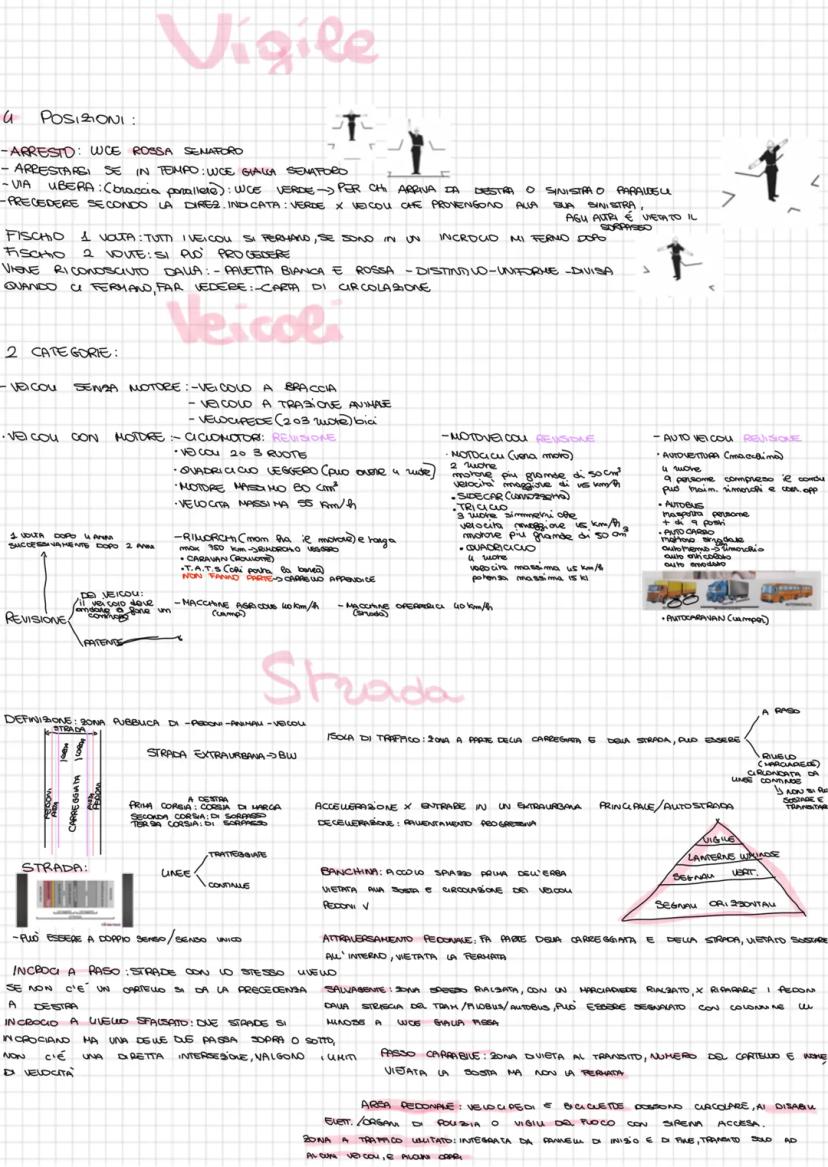 Vigile
4 POSIZIONI:
-ARRESTO: LUCE ROSSA SEMAFORO
- ARRESTARSI SE IN TEMPO: LUCE GIALLA SEMAFORO
-VIA LIBERA: (braccia parallele): LUCE VERDE → PER CHI ARRIVA DA DESTRA O SINISTRA O PARALLELI
-PRECEDERE SECONDO LA DIREZ. INDICATA: VERDE X VEICOLI CHE PROVENGONO ALLA SUA SINISTRA,
AGLI ALTRI È VIETATO IL
SORPASSO
FISCHIO 1 VOLTA: TUTTI I VEICOLI SI FERMANO, SE SONO IN UN INCROCIO MI FERMO DOPO
FISCHIO 2 VOLTE: SI PUÒ PROCEDERE
VIENE RICONOSCIUTO DALLA: - PALETTA BIANCA E ROSSA - DISTINTIVO - UNIFORME - DIVISA
QUANDO CI FERMANO, FAR VEDERE: - CARTA DI CIRCOLAZIONE
Veicoli
2 CATEGORIE:
- VEICOLI SENZA MOTORE: - VEICOLO A BRACCIA
- VEICOLO A TRAZIONE ANIMALE
- VELOCIPEDE (2 o 3 ruote) bici
• VEICOLI CON MOTORE: - CICLOMOTORI: REVISIONE
• VEICOLI 2 O 3 RUOTE
• QUADRICICLO LEGGERO (può avere 4 ruote)
• MOTORE MASSIMO 50 cm³
• VELOCITÀ MASSIMA 55 Km/h
- MOTOVEICOLI REVISIONE
• MOTOCICLI (vera moto)
2 ruote
motore più grande di 50 cm³
velocità maggiore di 45 km/h
• SIDECAR (carrozzetta)
• TRICICLO
3 ruote simmetriche
velocità maggiore 45 km/h
motore più grande di 50 cm³
• QUADRICICLO
4 ruote
velocità massima 45 km/h
potenza massima 15 kl
- AUTOVEICOLI REVISIONE
• AUTOVETTURA (macchina)
4 ruote
9 persone compreso il condu
può train. rimorchi e carr. app
• AUTOBUS
trasporta persone
+ di 9 posti
• AUTOCARRO
motrice singola
autotreno → rimorchio
auto articolato
auto snodato
• AUTOCARAVAN (camper)
- RIMORCHI (non ha il motore) e targa
max 750 km → RIMORCHIO LEGGERO
• CARAVAN (ROULOTTE)
• T.A.T.S (chi porta la barca)
NON FANNO PARTE → CARRELLO APPENDICE
- MACCHINE AGRICOLE 40 km/h
(campi)
- MACCHINE OPERATRICI 40 km/h
(strada)
1 VOLTA DOPO 4 ANNI
SUCCESSIVAMENTE DOPO 2 ANNI
REVISIONE
DEI VEICOLI:
il veicolo deve
andare a fare un
controllo
PATENTE
Strada
DEFINIZIONE: ZONA PUBBLICA DI - PEDONI - ANIMALI - VEICOLI
STRADA
CORSIA
CORSIA
CARREGGIATA
STRADA EXTRAURBANA → BLU
A DESTRA
PRIMA CORSIA: CORSIA DI MARCIA
SECONDA CORSIA: DI SORPASSO
TERZA CORSIA: DI SORPASSO
LINEE
TRATTEGGIATE
CONTINUE
STRADA:
- PUÒ ESSERE A DOPPIO SENSO/SENSO UNICO
INCROCI A RASO: STRADE CON LO STESSO LIVELLO
SE NON C'E' UN CARTELLO SI DA LA PRECEDENZA
A DESTRA
INCROCIO A LIVELLO SFALSATO: DUE STRADE SI
INCROCIANO MA UNA DELLE DUE PASSA SOPRA O SOTTO,
NON C'E' UNA DIRETTA INTERSEZIONE, VALGONO I LIMITI
DI VELOCITA'
ISOLA DI TRAFFICO: ZONA A PARTE DELLA CARREGGIATA E DELLA STRADA, PUÒ ESSERE
A RASO
RILIEVO
(MARCIAPIEDE)
CIRCONDATA DA
LINEE CONTINUE
NON SI PUÒ
SOSTARE E
TRANSITAR
ACCELLERAZIONE X ENTRARE IN UN EXTRAURBANA PRINCIPALE/AUTOSTRADA
DECELERAZIONE: RALLENTAMENTO PROGRESSIVA
VIGILE
LANTERNE LUMINOSE
SEGNALI VERT.
SEGNALI ORIZZONTALI
BANCHINA: PICCOLO SPAZIO PRIMA DELL'ERBA
VIETATA ALLA SOSTA E CIRCOLAZIONE DEI VEICOLI
PEDONI V
ATTRAVERSAMENTO PEDONALE: FA PARTE DELLA CARREGGIATA E DELLA STRADA, VIETATO SOSTARE
ALL'INTERNO, VIETATA LA FERMATA
SALVAGENTE: ZONA SPESSO RIALZATA, CON UN MARCIAPIEDE RIALZATO, X RIPARARE I PEDONI
DALLA STRISCIA DEL TRAM/FILOBUS/AUTOBUS, PUÒ ESSERE SEGNALATO CON COLONNINE LU
MINOSE A LUCE GIALLA FISSA
PASSO CARRABILE: ZONA DIVIETA AL TRANSITO, NUMERO DEL CARTELLO E NOME
VIETATA LA SOSTA MA NON LA FERMATA
AREA PEDONALE: VELOCIPEDI E BICICLETTE POSSONO CIRCOLARE, AI DISABILI
ELETT. /ORGANI DI POLIZIA O VIGILI DEL FUOCO CON SIRENA ACCESA.
ZONA A TRAFFICO LIMITATO: INTEGRATA DA PANNELLI DI INIZIO E DI FINE, TRANSITO SOLO AD
ALCUNI VEICOLI, E ALCUNI ORARI